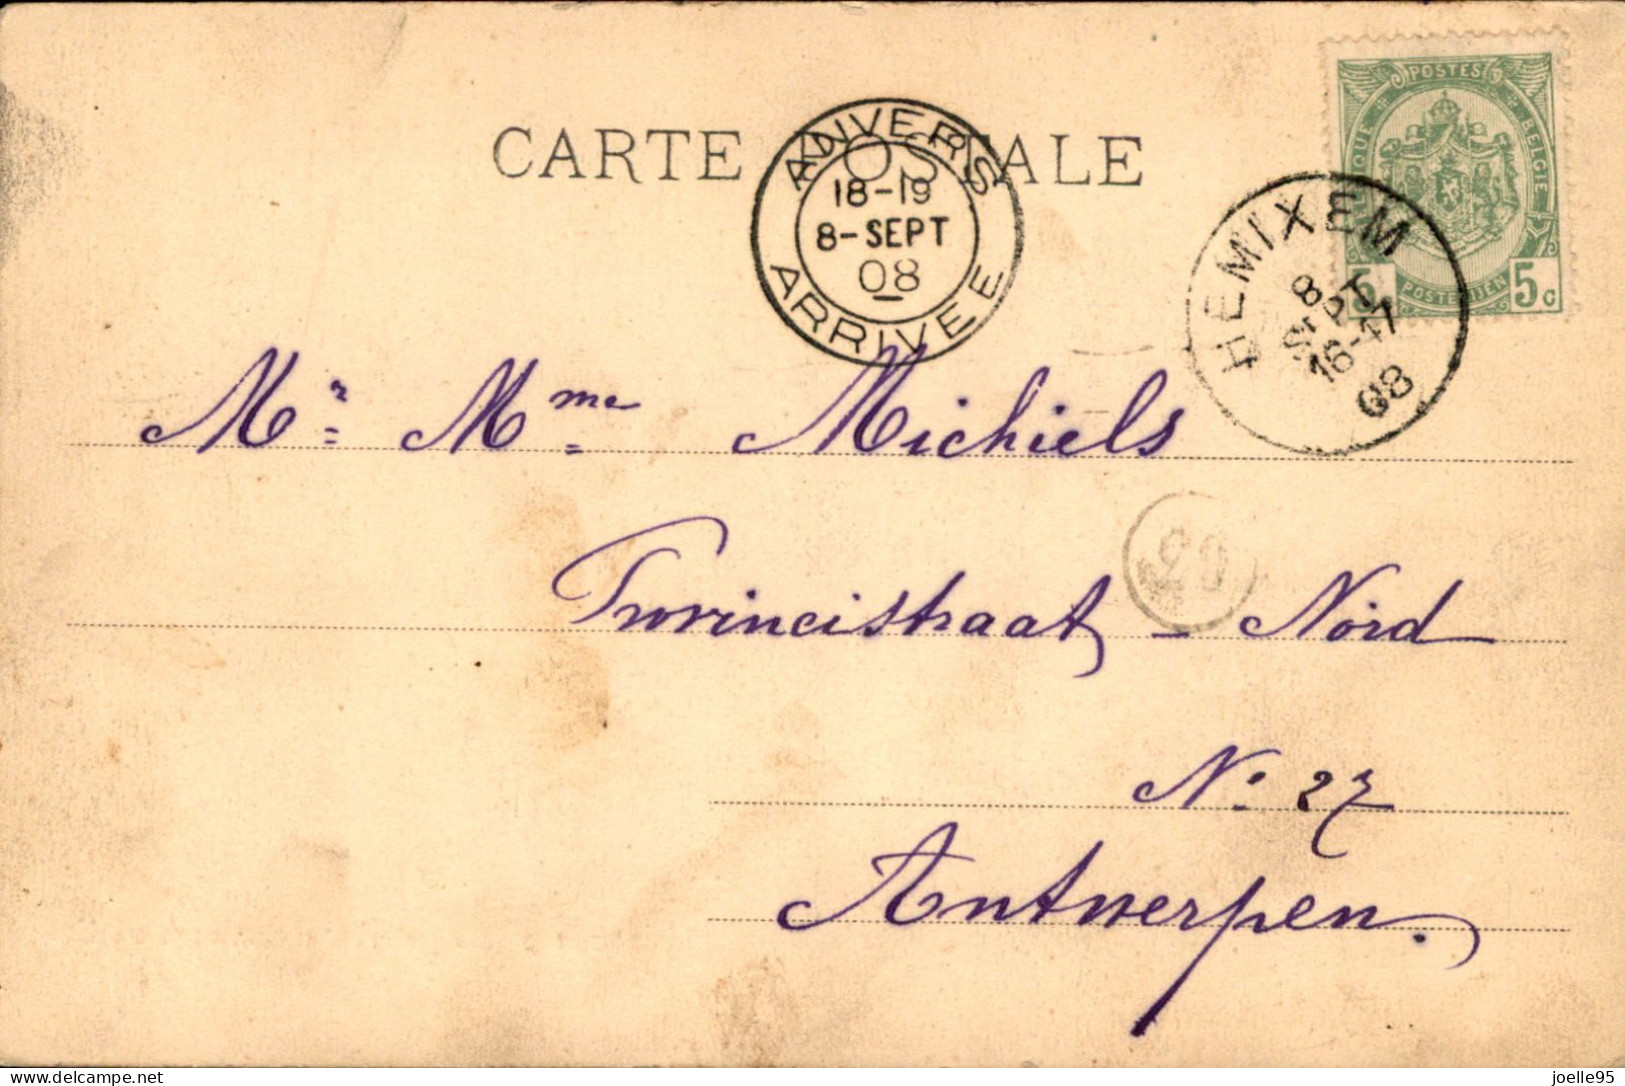 CARTE POSTALE
ANVERS
18-19
8-SEPT
08
ARRIVEE
POSTES
BELGIE
POSTERIJEN
5 5c
HEMIXEM
8 SEPT
16-17
08
Mr. Mme. Michiels
Provincistraat - Nord
No: 27
Antwerpen.
delcampe.net
joelle95